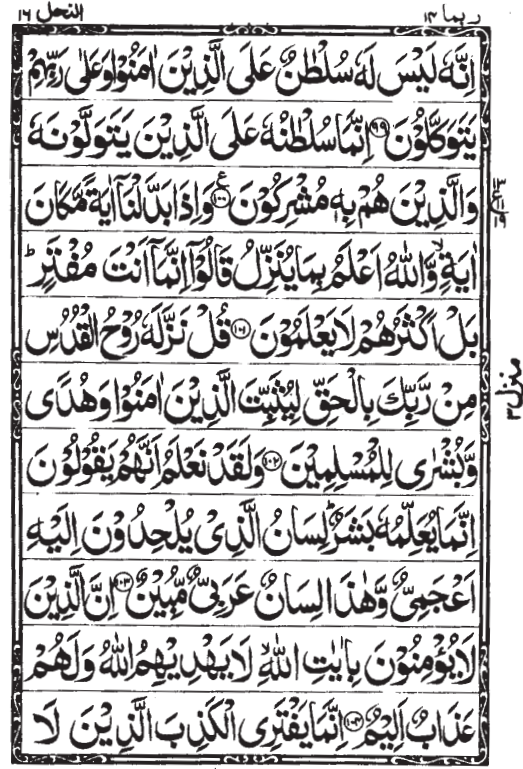 ربما ١٤ النحل ١٦
اِنَّهٗ لَيْسَ لَهٗ سُلْطٰنٌ عَلَى الَّذِيْنَ اٰمَنُوْا وَعَلٰى رَبِّهِمْ
يَتَوَكَّلُوْنَ ۹۹ اِنَّمَا سُلْطٰنُهٗ عَلَى الَّذِيْنَ يَتَوَلَّوْنَهٗ
وَالَّذِيْنَ هُمْ بِهٖ مُشْرِكُوْنَ ۱۰۰ ع وَاِذَا بَدَّلْنَاۤ اٰيَةً مَّكَانَ
اٰيَةٍ ۙ وَّاللّٰهُ اَعْلَمُ بِمَا يُنَزِّلُ قَالُوْۤا اِنَّمَاۤ اَنْتَ مُفْتَرٍ ؕ
بَلْ اَكْثَرُهُمْ لَا يَعْلَمُوْنَ ۱۰۱ قُلْ نَزَّلَهٗ رُوْحُ الْقُدُسِ
مِنْ رَّبِّكَ بِالْحَقِّ لِيُثَبِّتَ الَّذِيْنَ اٰمَنُوْا وَهُدًى
وَّبُشْرٰى لِلْمُسْلِمِيْنَ ۱۰۲ وَلَقَدْ نَعْلَمُ اَنَّهُمْ يَقُوْلُوْنَ
اِنَّمَا يُعَلِّمُهٗ بَشَرٌ ؕ لِسَانُ الَّذِيْ يُلْحِدُوْنَ اِلَيْهِ
اَعْجَمِيٌّ وَّهٰذَا لِسَانٌ عَرَبِيٌّ مُّبِيْنٌ ۱۰۳ اِنَّ الَّذِيْنَ
لَا يُؤْمِنُوْنَ بِاٰيٰتِ اللّٰهِ ۙ لَا يَهْدِيْهِمُ اللّٰهُ وَلَهُمْ
عَذَابٌ اَلِيْمٌ ۱۰۴ اِنَّمَا يَفْتَرِى الْكَذِبَ الَّذِيْنَ لَا
منزل ٣